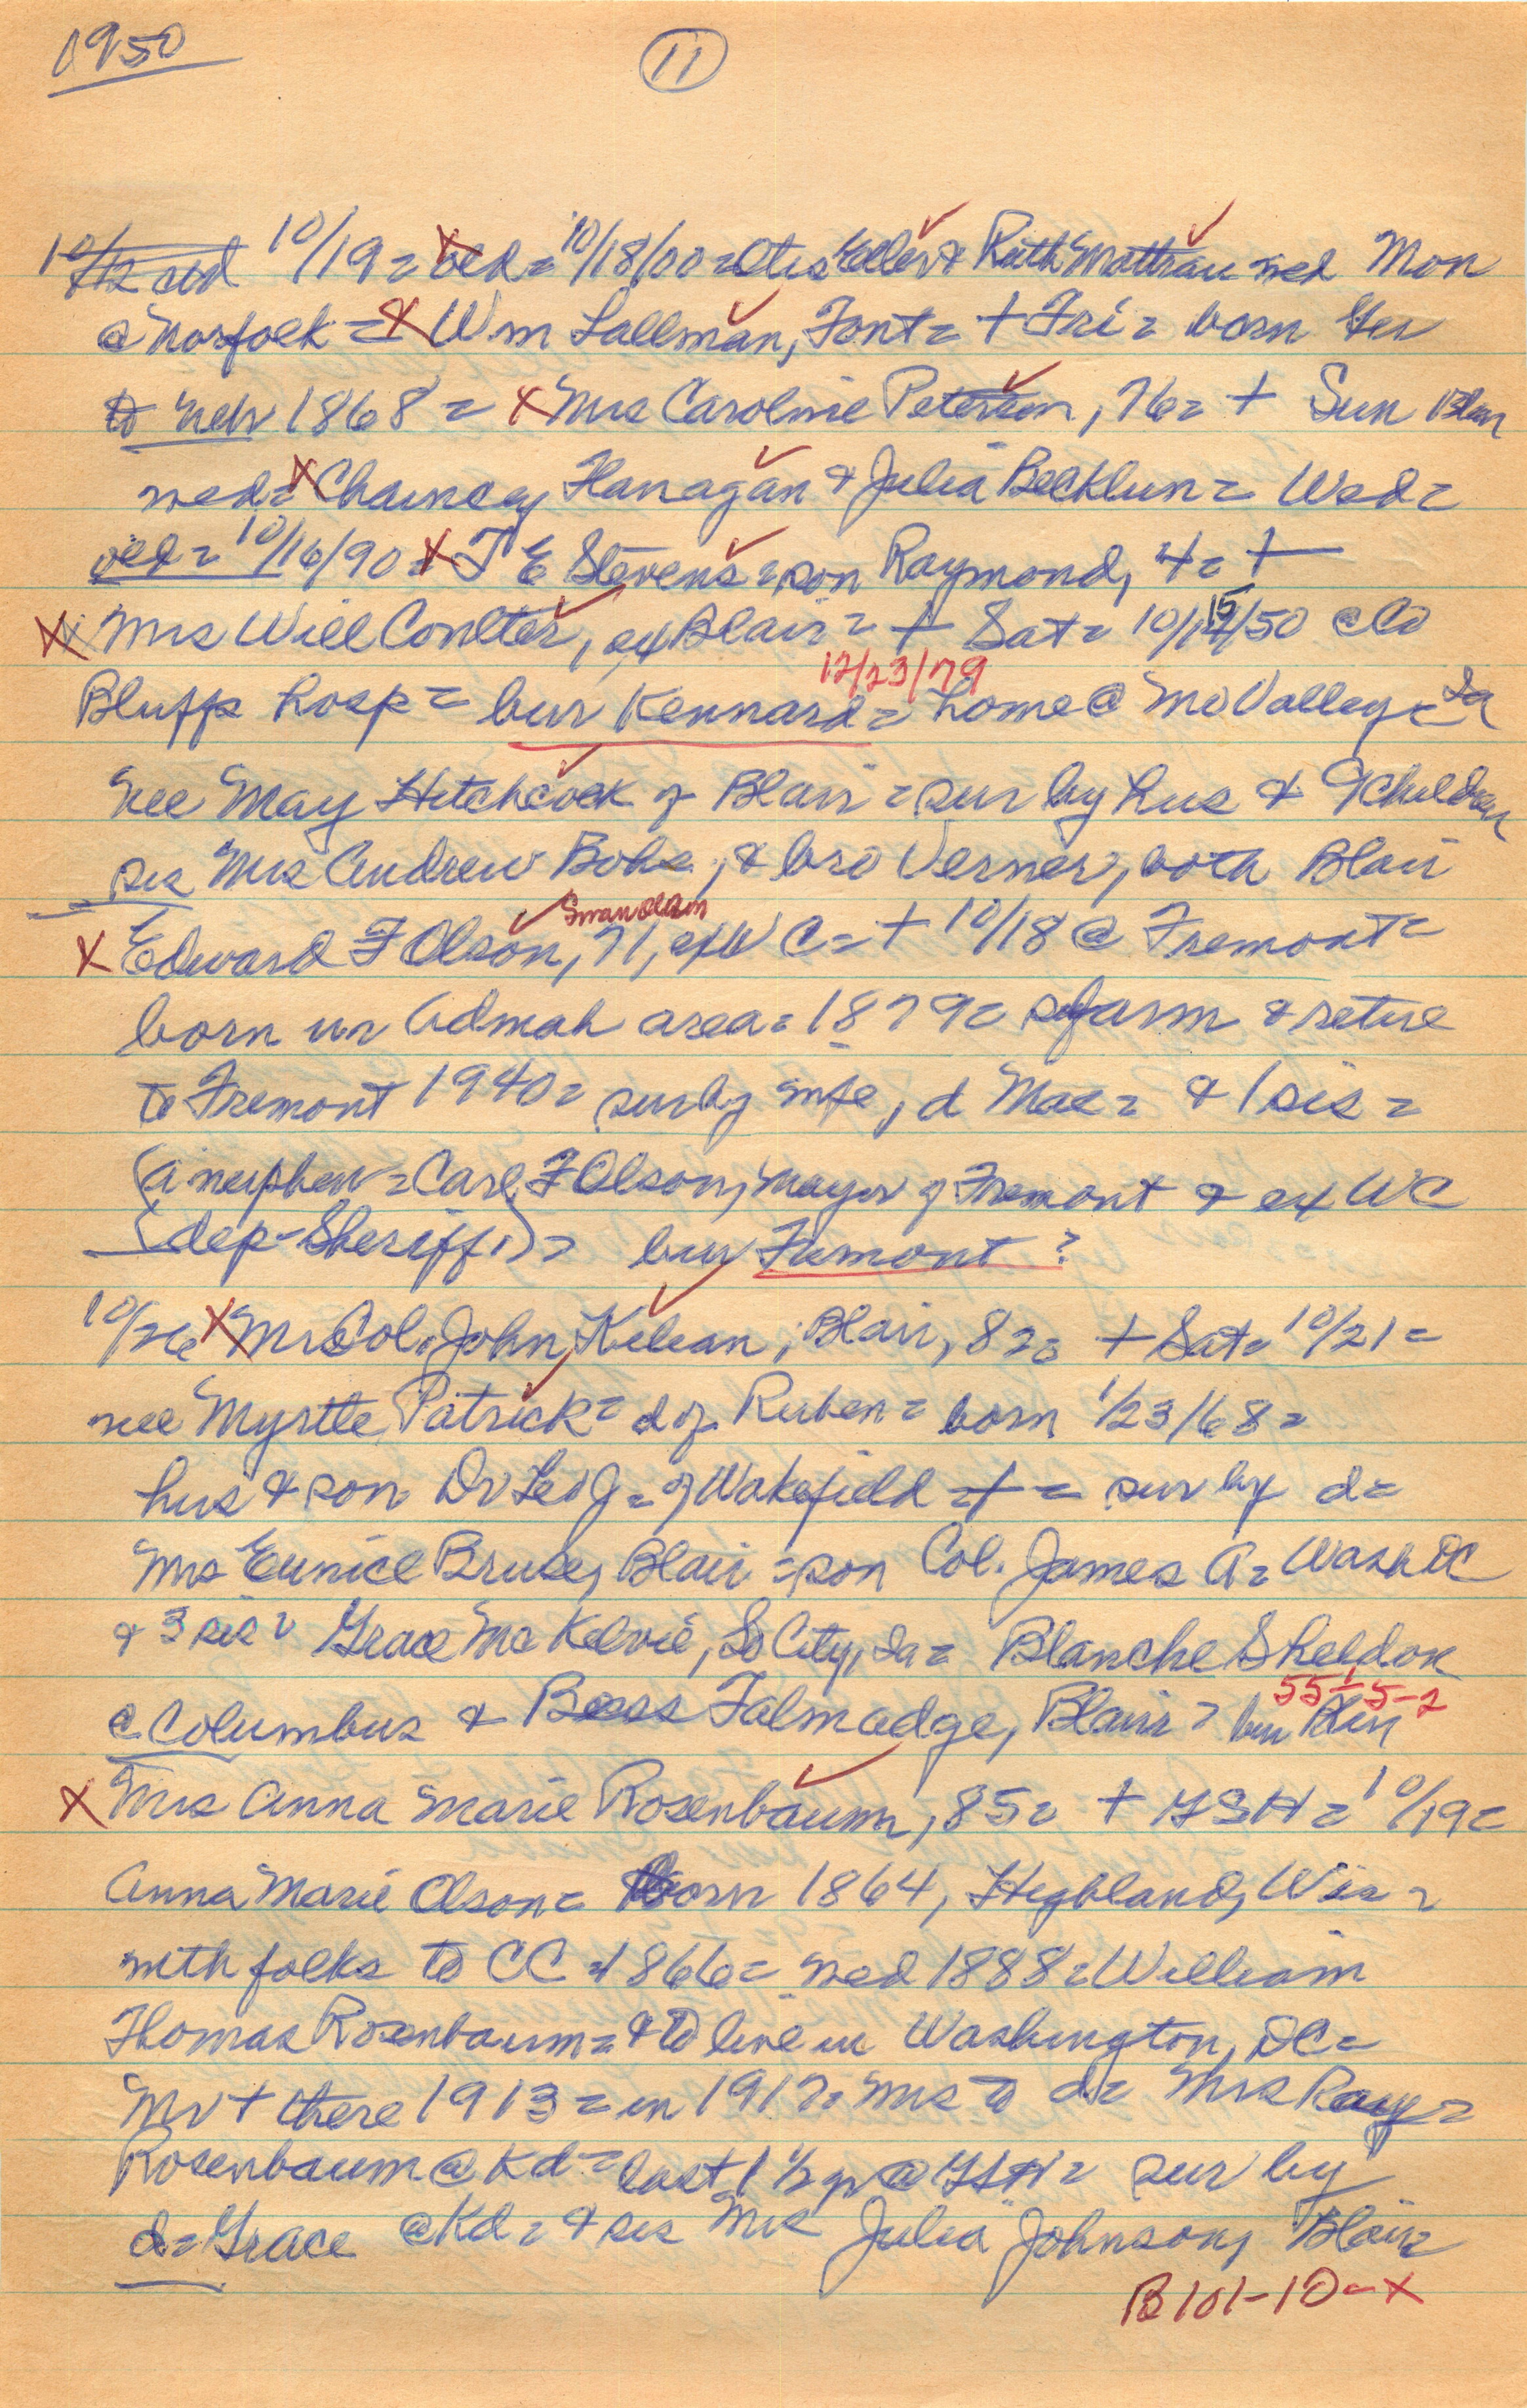 1950
11
10/19 = old = 10/18/00 = Otis & Ruth wed Mon
@ Norfolk = X Wm Lallman, Font = + Fri = born Ger
to Neb 1868 = X Mrs Caroline Petersen, 76 = + Sun Blair
wed = X Chauncey Flanagan & Julia Becklun = Wed =
old = 10/16/90 = X T E Stevens = son Raymond, 4 = +
X Mrs Will Coulter, ex Blair = + Sat = 10/15/50 @ Co
12/23/79
Bluffs hosp = bur Kennard = home @ Mo Valley = Ia
nee May Hitchcock of Blair = sur by hus & 9 children
sis Mrs Andrew & bro Verner, both Blair
X Edward F Olson, 71, ex W C = + 10/18 @ Fremont =
born in Admah area = 1879 = farm & retire
to Fremont 1940 = sur by wife, d Mae = & 1 sis =
(a nephew = Carl F Olson, mayor of Fremont & ex WC
dep-Sheriff.) = bur Fremont ?
10/26 X Mrs Col. John Kelean, Blair, 82 = + Sat = 10/21 =
nee Myrtle Patrick = d of Ruben = born 1/23/68 =
hus & son Dr Leo J = of Wakefield = + = sur by d =
Mrs Eunice Bruse, Blair = son Col. James A = Wash DC
& 3 sis = Grace McKelvie, So City, Ia = Blanche Sheldon
55-1-5-2
@ Columbus & Bess Talmadge, Blair = bur Blair
X Mrs Anna Marie Rosenbaum, 85 = + = 10/19 =
Anna Marie Olson = born 1864, Highland, Wis =
with folks to CC = 1866 = wed 1888 = William
Thomas Rosenbaum = & to live in Washington, DC =
Mr + there 1913 = in 1917 = Mrs to d = Mrs Ray =
Rosenbaum @ Kd = last 1 1/2 yr @ = sur by
d = Grace @ Kd = & sis Mrs Julia Johnson, Blair
B 101-10 = X